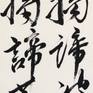 揭諦波
揭諦